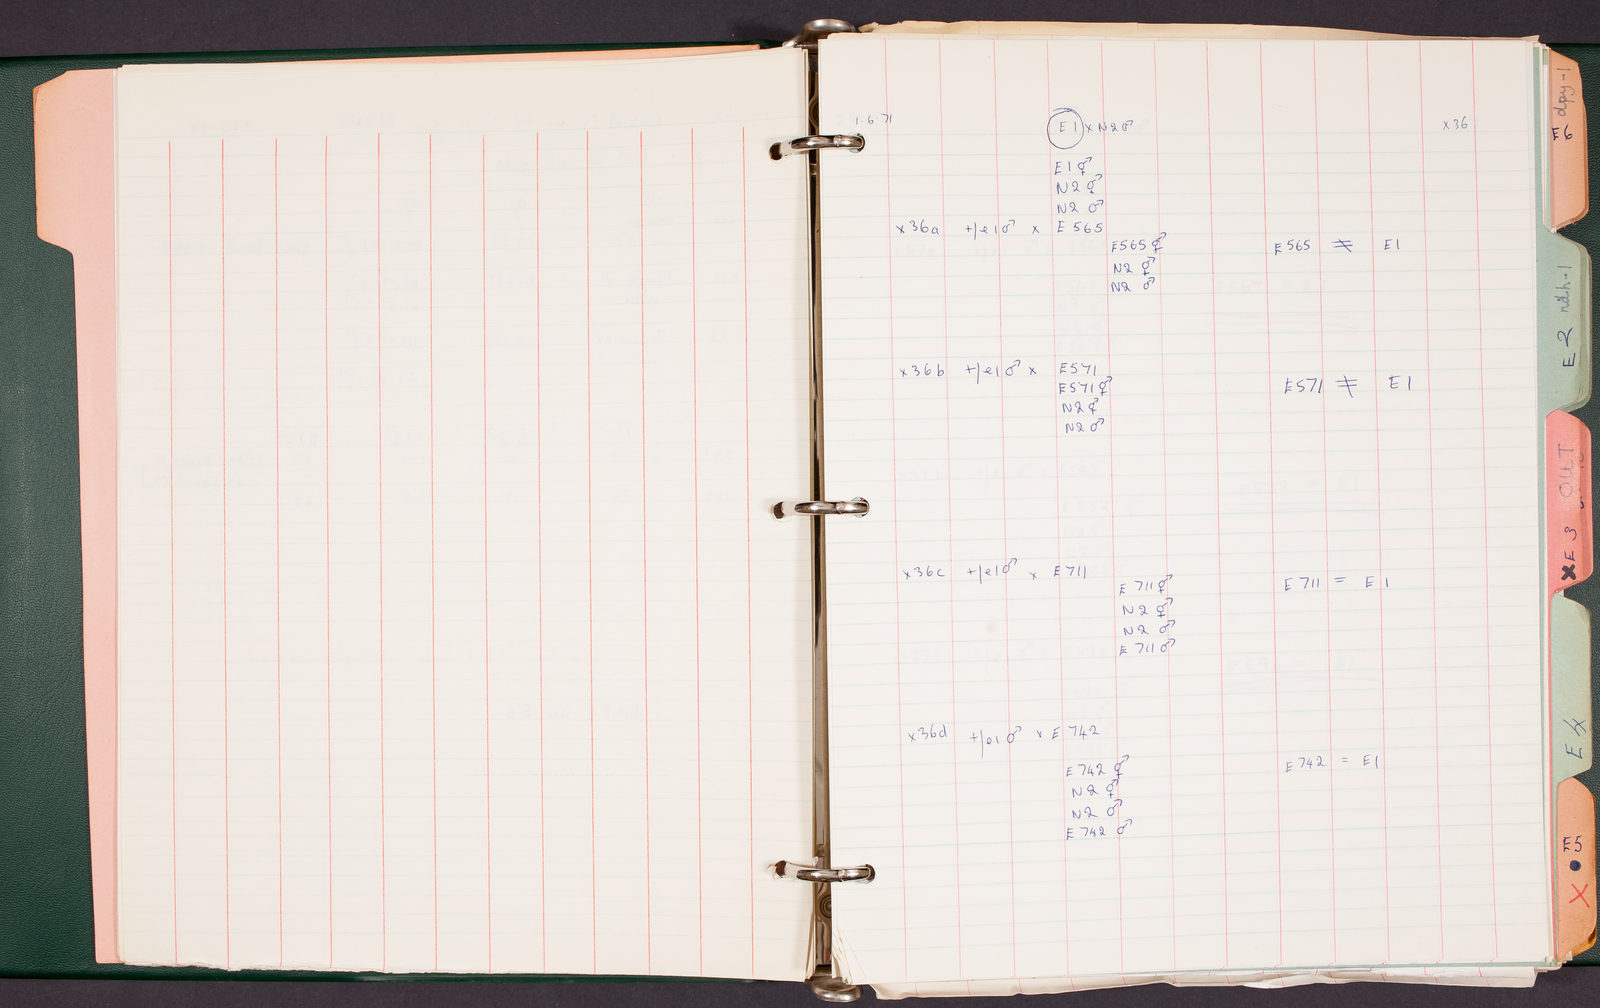 1.6.71 E1 x N2 ♂ x36
E1 ⚥
N2 ⚥
N2 ♂
x36a +/e1 ♂ x E565
E565 ⚥ E565 ≠ E1
N2 ⚥
N2 ♂
x36b +/e1 ♂ x E571
E571 ⚥ E571 ≠ E1
N2 ⚥
N2 ♂
x36c +/e1 ♂ x E711
E711 ⚥ E711 = E1
N2 ⚥
N2 ♂
E711 ♂
x36d +/e1 ♂ x E742
E742 ⚥ E742 = E1
N2 ⚥
N2 ♂
E742 ♂
E6 dpy-1
E2
XE3 OUT
E4
E5
X